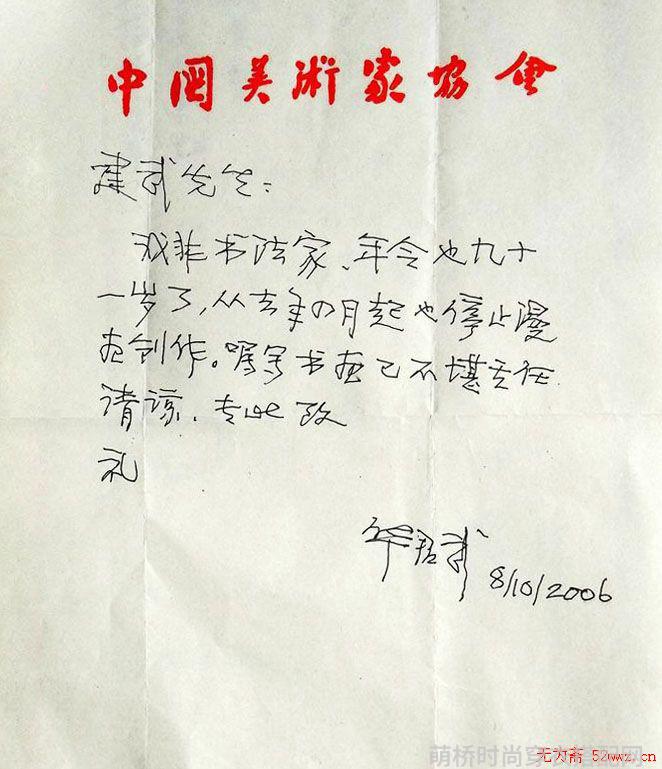 中国美術家協會
建武先生：
我非书法家、年令也九十
一岁了，从去年四月起也停止漫
画创作。嘱写书画已不堪重任
请谅、专此 致
礼
华君武
8/10/2006
萌桥时尚穿搭配网
无为斋 52wwz.cn